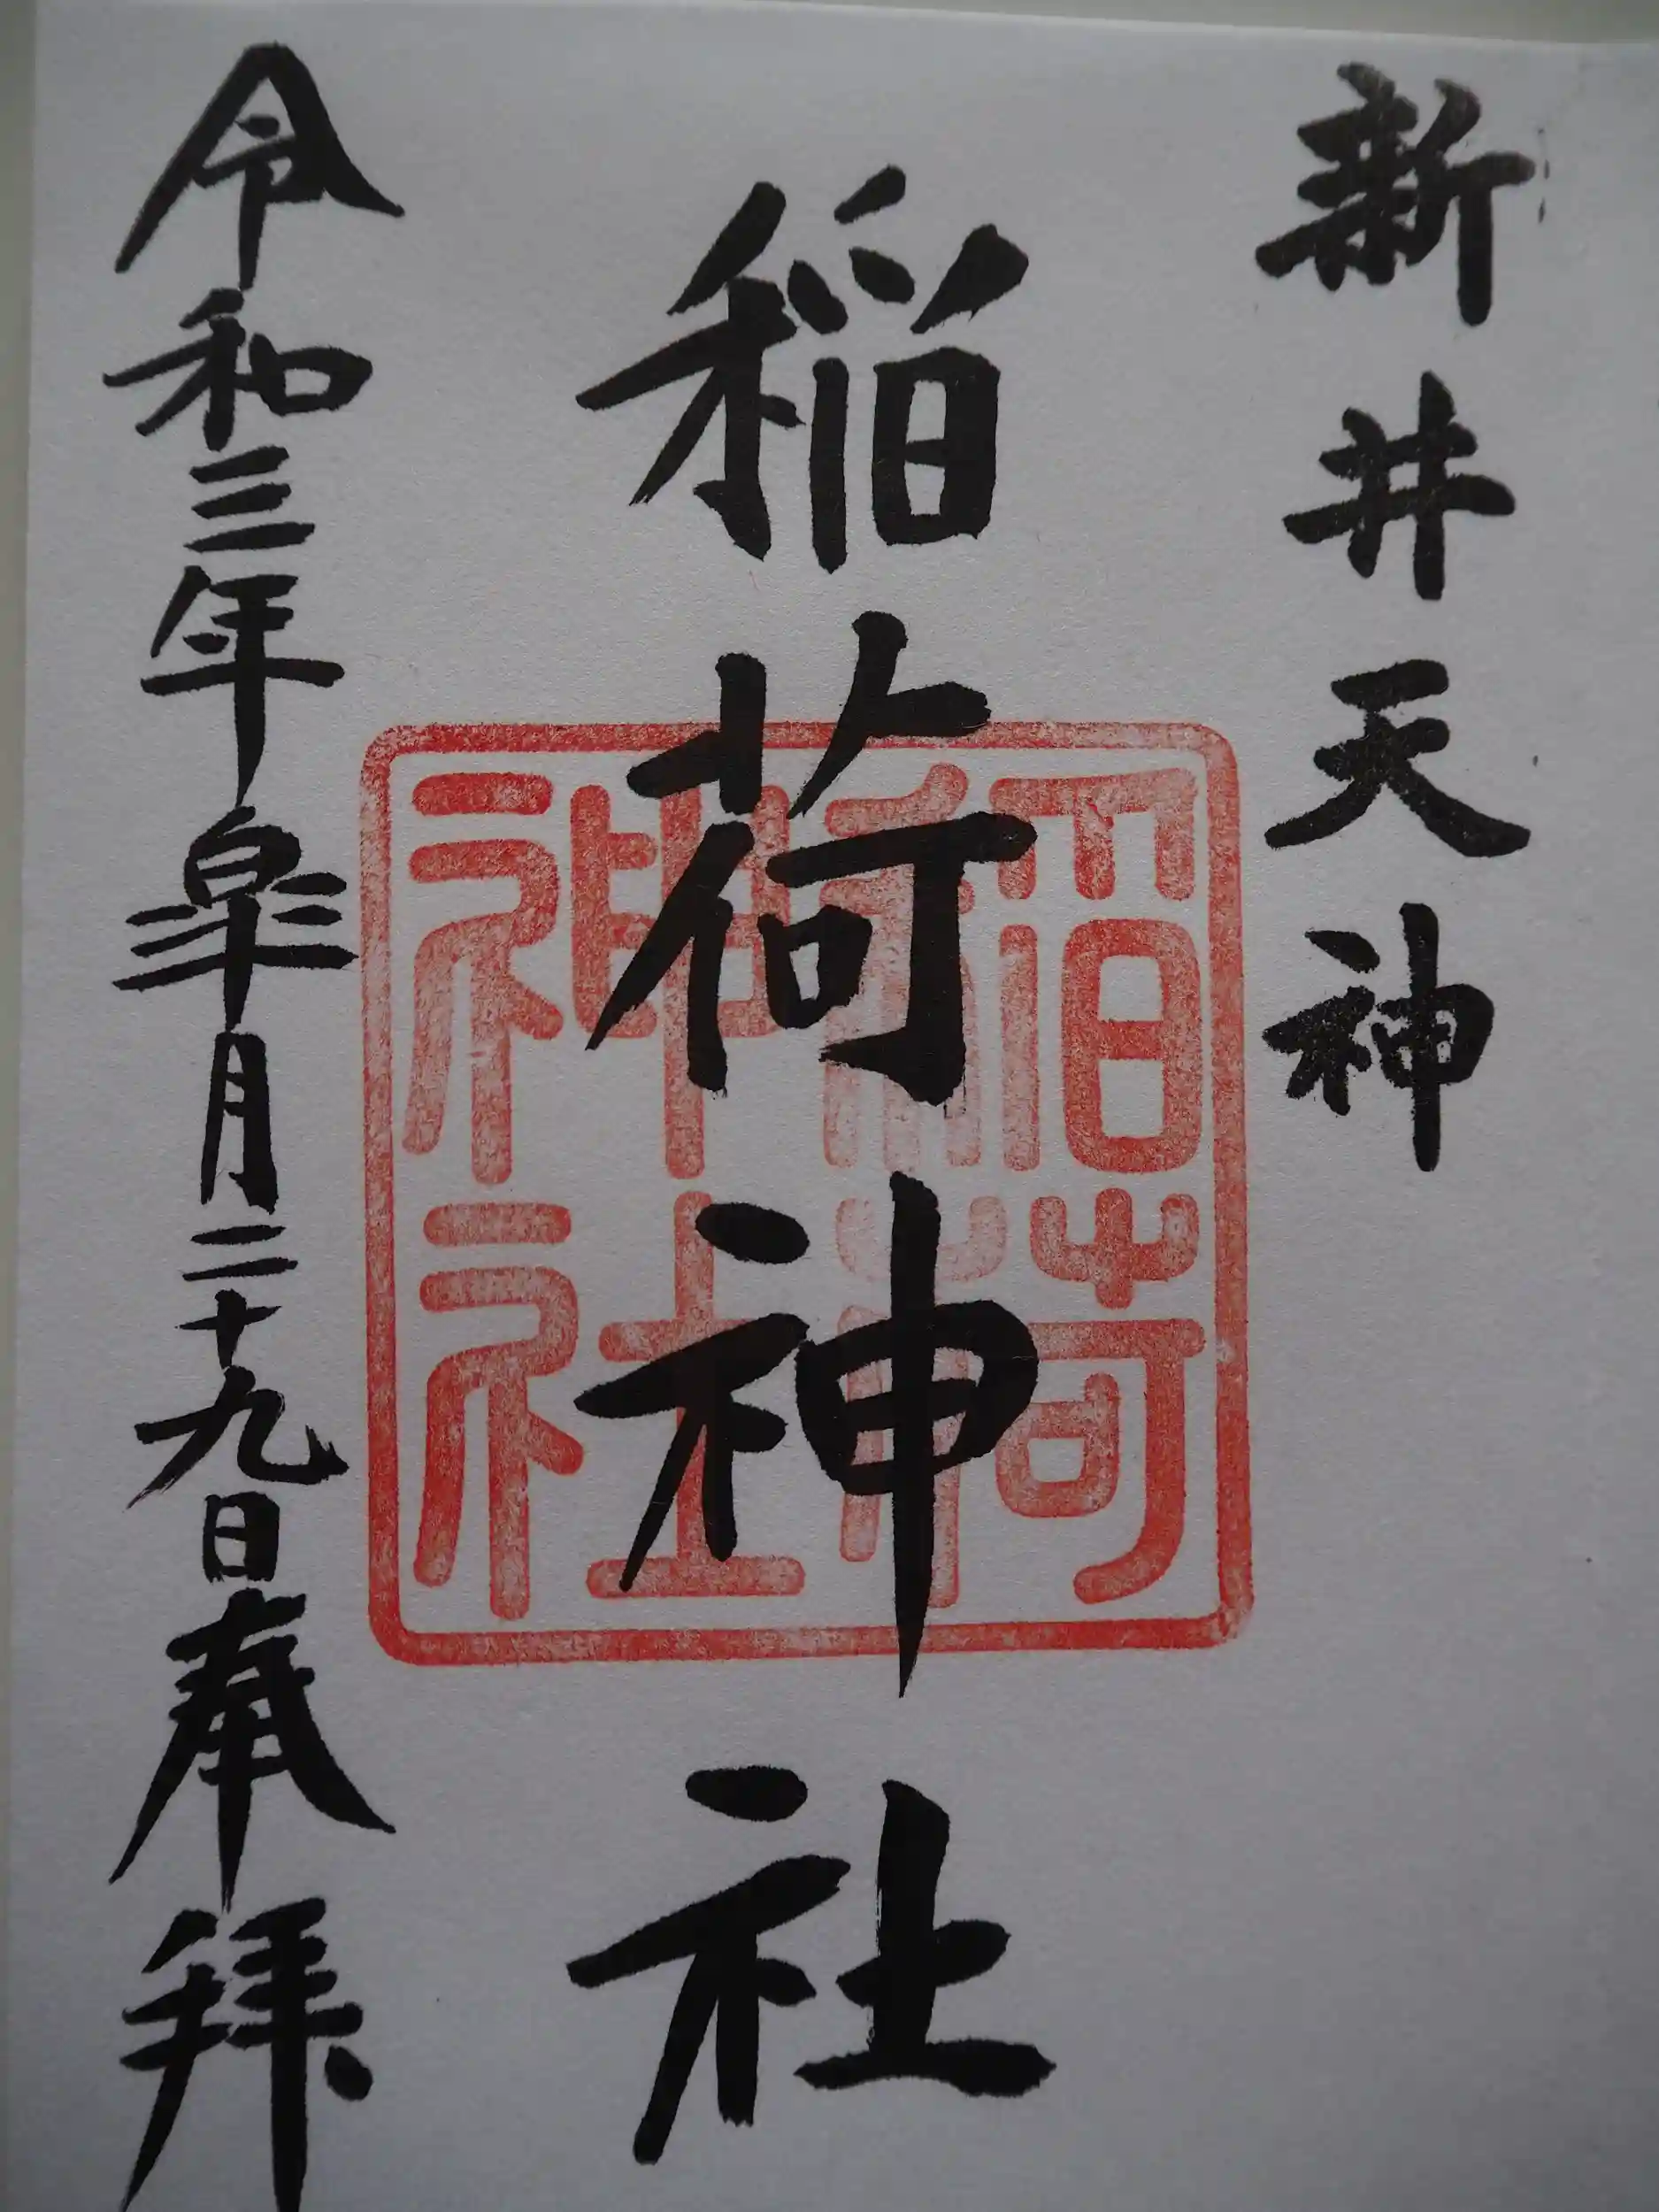 新井天神
稲荷神社
稲荷
神社
令和三年皐月二十九日奉拝